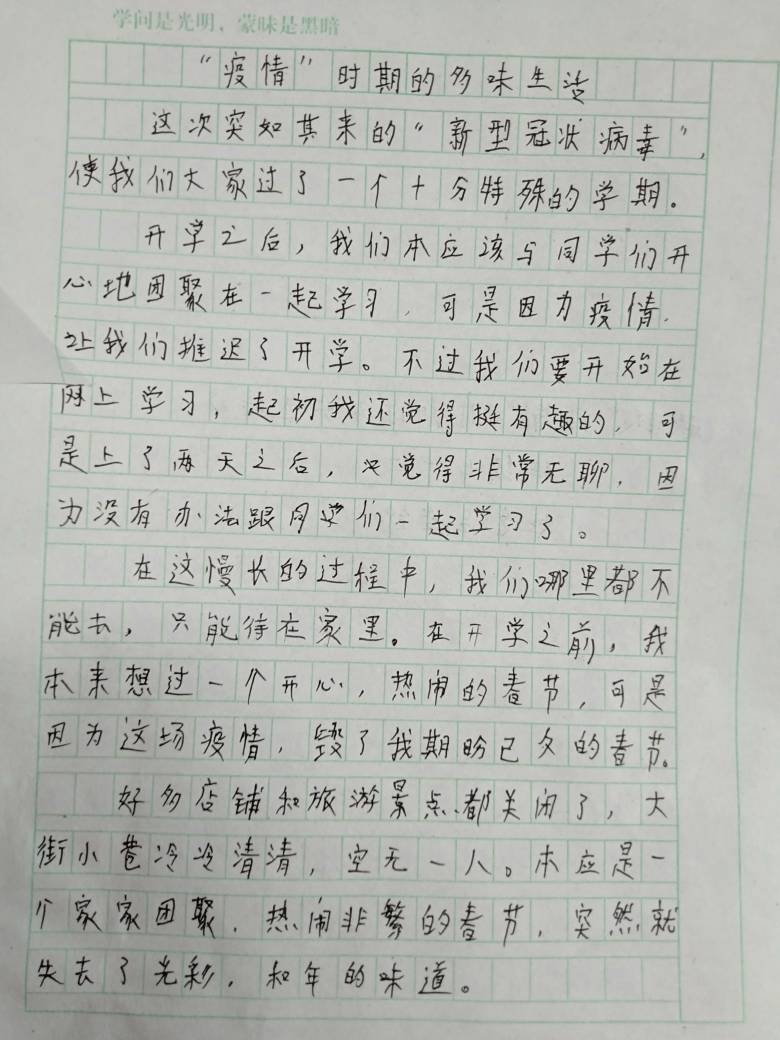 学问是光明、蒙昧是黑暗
“疫情”时期的多味生活
这次突如其来的“新型冠状病毒”,
使我们大家过了一个十分特殊的学期。
开学之后,我们本应该与同学们开
心地团聚在一起学习,可是因为疫情,
让我们推迟了开学。不过我们要开始在
网上学习,起初我还觉得挺有趣的,可
是上了两天之后,只觉得非常无聊,因
为没有办法跟同学们一起学习了。
在这慢长的过程中,我们哪里都不
能去,只能待在家里。在开学之前,我
本来想过一个开心,热闹的春节,可是
因为这场疫情,毁了我期盼已久的春节。
好多店铺和旅游景点都关闭了,大
街小巷冷冷清清,空无一人。本应是一
个家家团聚,热闹非繁的春节,突然就
失去了光彩,和年的味道。